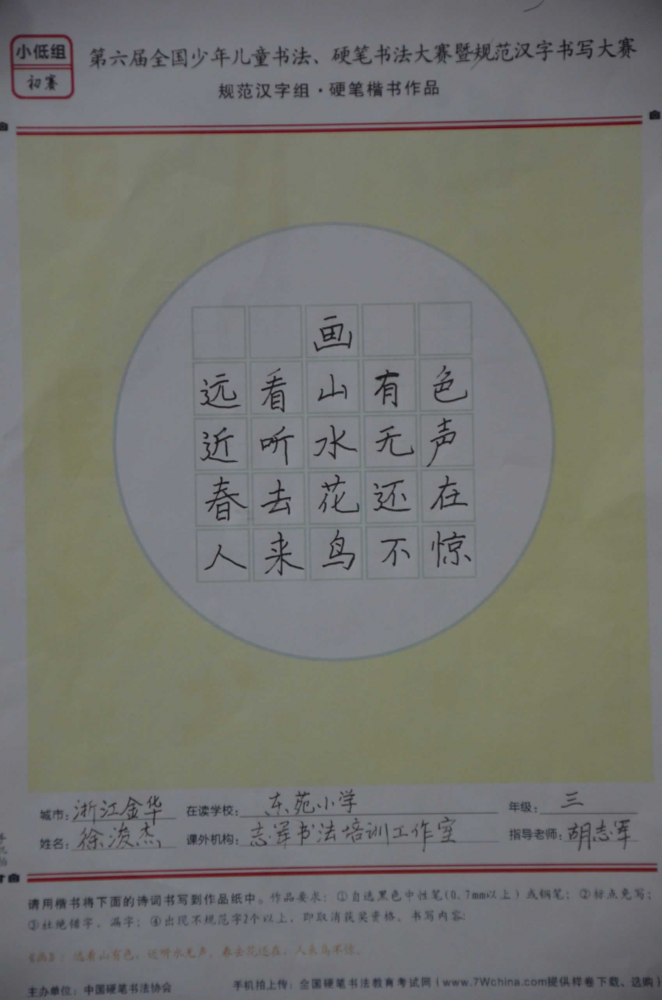 小低组
初赛
第六届全国少年儿童书法、硬笔书法大赛暨规范汉字书写大赛
规范汉字组·硬笔楷书作品
画
远看山有色
近听水无声
春去花还在
人来鸟不惊
城市：浙江金华 在读学校：东苑小学 年级：三
姓名：徐浚杰 课外机构：志军书法培训工作室 指导老师：胡志军
请用楷书将下面的诗词书写到作品纸中。作品要求：①自选黑色中性笔(0.7mm以上)或钢笔；②标点免写；
③杜绝错字、漏字；④出现不规范字2个以上，即取消获奖资格。书写内容：
《画》：远看山有色，近听水无声。春去花还在，人来鸟不惊。
主办单位：中国硬笔书法协会 手机拍上传：全国硬笔书法教育考试网|www.7Wchina.com提供样卷下载、选购|